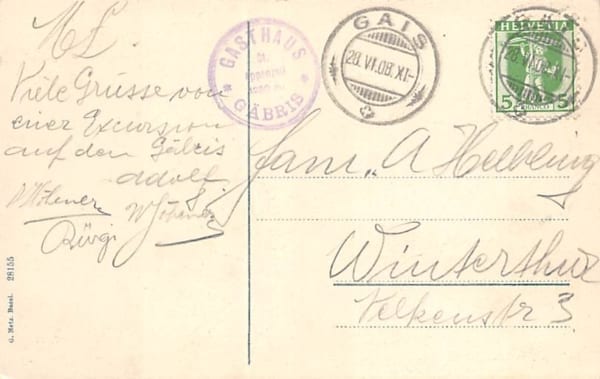 M L.
Viele Grüsse von
einer Excursion
auf den Gäbris
Adolf
Bürgi
GASTHAUS
GÄBRIS
GAIS
28.VI.08.XI-
HELVETIA
5 FRANCO 5
Fam. A Helbling
Winterthur
Nelkenstr 3
G. Metz, Basel. 28155